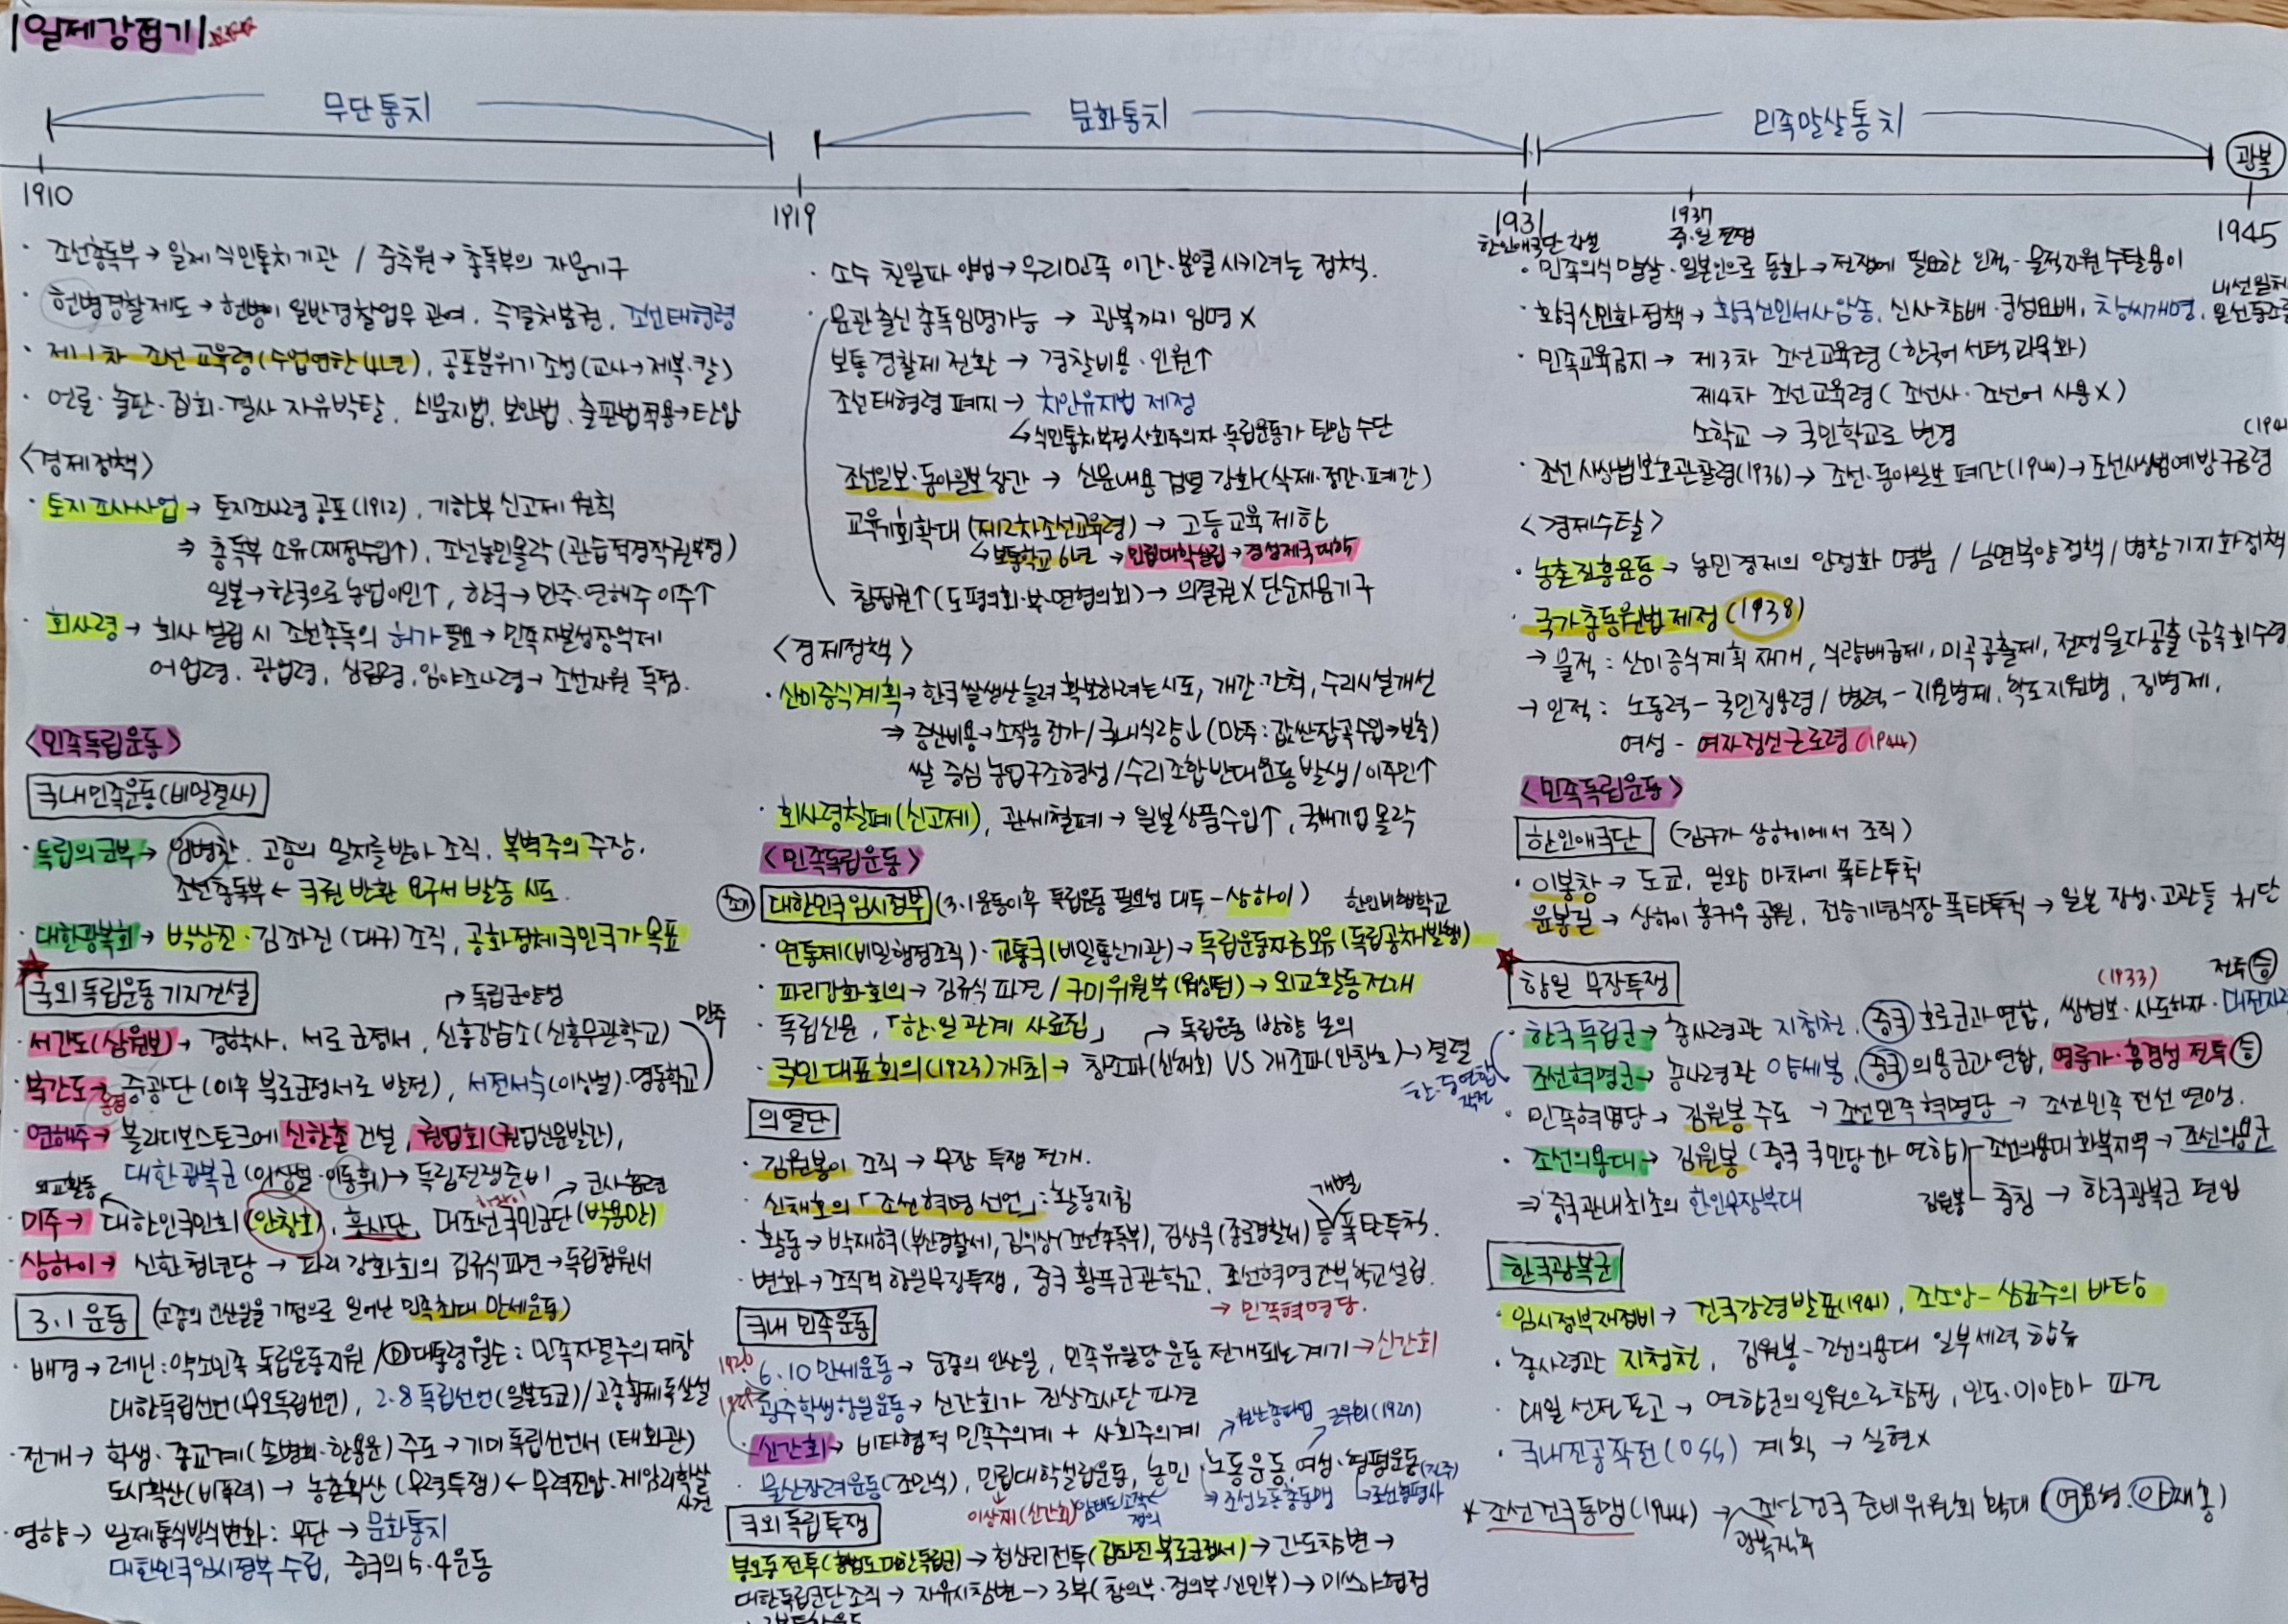 일제강점기
무단통치
문화통치
민족말살통치
광복
1910
1919
1931
한인애국단 창설
1937
중·일 전쟁
1945
· 조선총독부 → 일제 식민통치기관 / 중추원 → 총독부의 자문기구
· 헌병경찰제도 → 헌병이 일반경찰업무 관여, 즉결처분권, 조선태형령
· 제1차 조선교육령(수업연한 4년), 공포분위기 조성(교사→제복·칼)
· 언론·출판·집회·결사 자유박탈, 신문지법, 보안법, 출판법적용→탄압
<경제정책>
· 토지조사사업 → 토지조사령 공포(1912), 기한부 신고제 원칙
⇒ 총독부 소유(재정수입↑), 조선농민몰락(관습적경작권부정)
일본→한국으로 농업이민↑, 한국→만주·연해주 이주↑
· 회사령 → 회사 설립 시 조선총독의 허가 필요 → 민족자본성장억제
어업령, 광업령, 삼림령, 임야조사령 → 조선자원 독점.
<민족독립운동>
국내민족운동(비밀결사)
· 독립의군부 → 임병찬, 고종의 밀지를 받아 조직, 복벽주의 주장,
조선총독부 ← 국권 반환 요구서 발송 시도.
· 대한광복회 → 박상진·김좌진 (대구) 조직, 공화정체국민국가 목표
국외독립운동 기지건설
→ 독립군양성
· 서간도(삼원보) → 경학사, 서로군정서, 신흥강습소(신흥무관학교)
만주
· 북간도 → 중광단 (이후 북로군정서로 발전), 서전서숙(이상설)·명동학교
· 연해주 → 블라디보스토크에 신한촌 건설, 권업회(권업신문발간),
대한광복군 (이상설·이동휘) → 독립전쟁준비
외교활동
→ 군사훈련
· 미주 → 대한인국민회 (안창호), 흥사단, 대조선국민군단 (박용만)
· 상하이 → 신한청년당 → 파리강화회의 김규식파견 → 독립청원서
3.1운동 (고종의 인산일을 기점으로 일어난 민족최대 만세운동)
· 배경 → 레닌: 약소민족 독립운동지원 / 대통령윌슨: 민족자결주의 제창
대한독립선언(무오독립선언), 2·8 독립선언(일본도쿄) / 고종황제독살설
· 전개 → 학생·종교계(손병희·한용운) 주도 → 기미독립선언서 (태화관)
도시확산(비폭력) → 농촌확산 (무력투쟁) ← 무력진압·제암리학살
사건
· 영향 → 일제통치방식변화: 무단 → 문화통치
대한민국임시정부 수립, 중국의 5·4운동
· 소수 친일파 양성 → 우리민족 이간·분열 시키려는 정책.
· 문관출신총독임명가능 → 광복까지 임명 X
보통경찰제 전환 → 경찰비용·인원↑
조선태형령 폐지 → 치안유지법 제정
↳ 식민통치부정 사회주의자·독립운동가 탄압 수단
조선일보·동아일보 창간 → 신문내용 검열 강화(삭제·정간·폐간)
교육기회확대 (제2차조선교육령) → 고등교육 제한
↳ 보통학교 6년 → 민립대학설립 → 경성제국대학
참정권↑ (도평의회·부·면협의회) → 의결권X 단순자문기구
<경제정책>
· 산미증식계획 → 한국쌀생산 늘려 확보하려는 시도, 개간·간척, 수리시설개선
⇒ 증산비용→소작농 전가 / 국내식량↓ (만주: 값싼잡곡수입→보충)
쌀 중심 농업구조형성 / 수리조합반대운동 발생 / 이주민↑
· 회사령철폐(신고제), 관세철폐 → 일본상품수입↑, 국내기업 몰락
<민족독립운동>
초기 대한민국임시정부 (3·1운동이후 독립운동 필요성 대두 - 상하이)
한인비행학교
· 연통제(비밀행정조직)·교통국(비밀통신기관) → 독립운동자금모음 (독립공채발행)
· 파리강화회의 → 김규식 파견 / 구미위원부 (워싱턴) → 외교활동전개
· 독립신문, 「한·일관계 사료집」
→ 독립운동 방향 논의
· 국민대표회의(1923) 개최 → 창조파(신채호) VS 개조파(안창호) → 결렬
의열단
· 김원봉이 조직 → 무장 투쟁 전개.
· 신채호의 「조선혁명선언」: 활동지침
개별
· 활동 → 박재혁(부산경찰서), 김익상(조선총독부), 김상옥(종로경찰서) 등 폭탄투척.
· 변화 → 조직적 항일무장투쟁, 중국 황푸군관학교, 조선혁명간부학교설립.
→ 민족혁명당.
국내 민족운동
· 6.10 만세운동 → 순종의 인산일, 민족유일당운동 전개되는 계기 → 신간회
· 광주학생항일운동 → 신간회가 진상조사단 파견
· 신간회 → 비타협적 민족주의계 + 사회주의계
원산총파업
근우회(1927)
· 물산장려운동(조만식), 민립대학설립운동, 농민·노동운동, 여성·형평운동 (진주)
이상재(신간회)
암태도소작쟁의
→ 조선노동총동맹
↳ 조선형평사
국외독립투쟁
봉오동전투 (홍범도 대한독립군) → 청산리전투 (김좌진 북로군정서) → 간도참변 →
대한독립군단조직 → 자유시참변 → 3부 (참의부·정의부·신민부) → 미쓰야협정
· 민족의식 말살·일본인으로 동화 → 전쟁에 필요한 인적·물적자원 수탈용이
내선일체
· 황국신민화정책 → 황국신민서사암송, 신사참배·궁성요배, 창씨개명,
· 민족교육금지 → 제3차 조선교육령 (한국어 선택과목화)
제4차 조선교육령 ( 조선사·조선어 사용X)
소학교 → 국민학교로 변경
· 조선사상범보호관찰령(1936) → 조선·동아일보 폐간(1940) → 조선사상범예방구금령
<경제수탈>
· 농촌진흥운동 → 농민경제의 안정화 명분 / 남면북양정책 / 병참기지화정책
· 국가총동원법제정 (1938)
→ 물적: 산미증식계획 재개, 식량배급제, 미곡공출제, 전쟁물자공출 (금속회수령
→ 인적: 노동력 - 국민징용령 / 병력 - 지원병제, 학도지원병, 징병제,
여성 - 여자정신근로령 (1944)
<민족독립운동>
한인애국단 (김구가 상하이에서 조직)
· 이봉창 → 도쿄, 일왕 마차에 폭탄투척
윤봉길 → 상하이 홍커우 공원, 전승기념식장 폭탄투척 → 일본 장성·고관들 처단
항일 무장투쟁
(1933)
전투 승
· 한국독립군 → 총사령관 지청천, 중국 호로군과 연합, 쌍성보·사도하자·대전자령
· 조선혁명군 → 총사령관 양세봉, 중국 의용군과 연합, 영릉가·흥경성 전투 승
한·중연합작전
· 민족혁명당 → 김원봉 주도 → 조선민족혁명당 → 조선민족 전선 연맹.
· 조선의용대 → 김원봉 (중국 국민당과 연합) - 조선의용대화북지역 → 조선의용군
김원봉 - 충칭 → 한국광복군 편입
⇒ 중국관내최초의 한인무장부대
한국광복군
· 임시정부재정비 → 건국강령발표(1941), 조소앙 - 삼균주의 바탕
· 총사령관 지청천, 김원봉 - 조선의용대 일부세력 합류
· 대일 선전 포고 → 연합군의일원으로참전, 인도·미얀마 파견
· 국내진공작전 (OSS) 계획 → 실현X
* 조선건국동맹(1944) → 조선건국준비위원회 확대 (여운형·안재홍)
광복직후